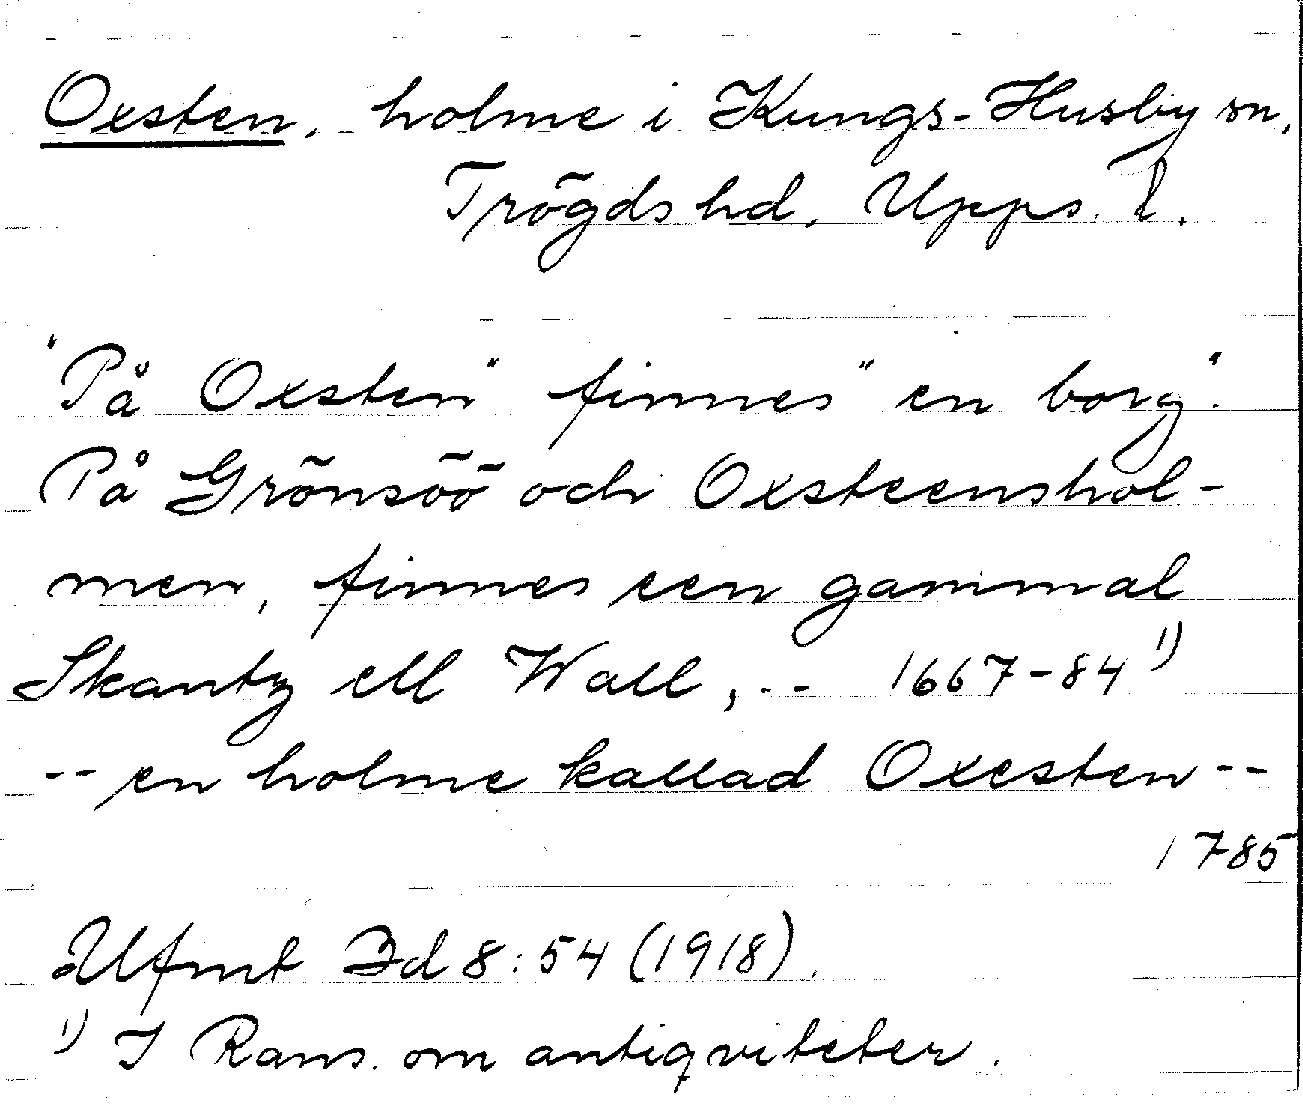 Oxsten, holme i Kungs-Husby sn,
Trögds hd. Upps. l.
"På Oxsten" finnes "en borg".
På Grönsöö och Oxsteenshol-
men, finnes een gammal
Skantz ell Wall, -- 1667-84 1)
-- en holme kallad Oxesten --
1785
Ufmt Bd 8:54 (1918).
1) I Rans. om antiqviteter.